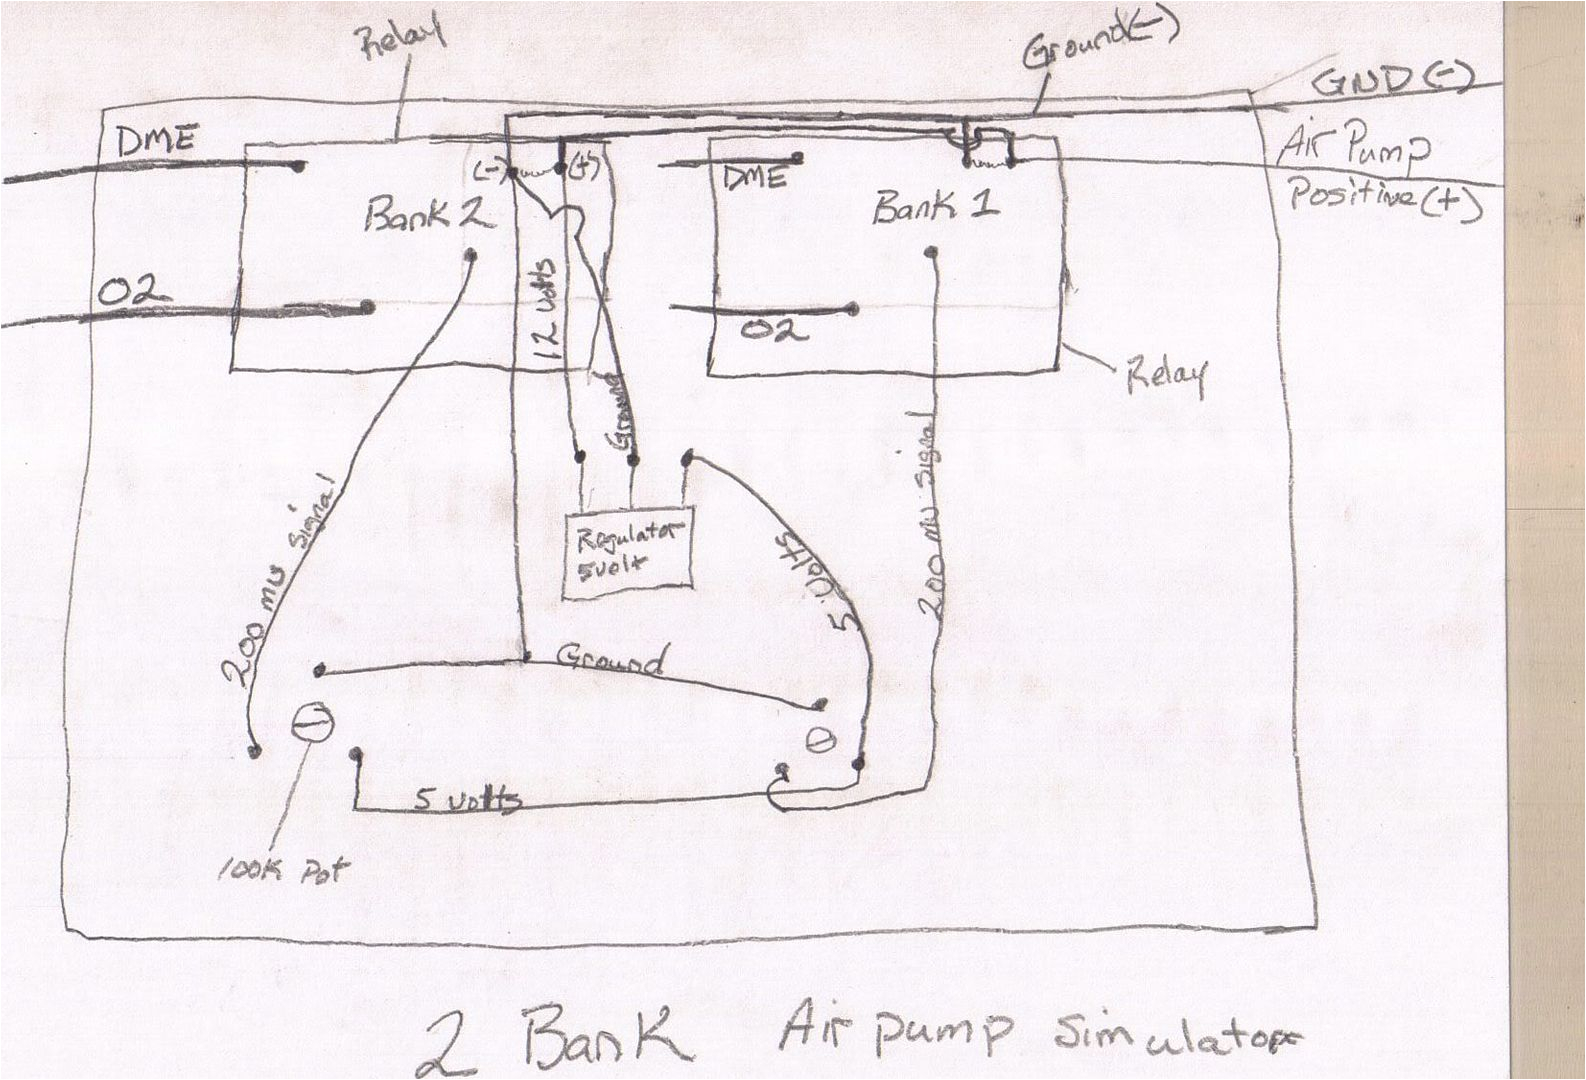 Relay
Ground(-)
GND (-)
DME
Air Pump
(-)
(+)
DME
Positive (+)
Bank 2
Bank 1
O2
12 volts
O2
Relay
Ground
200 mv Signal
200 mv Signal
Regulator
5volt
5 volts
Ground
5 volts
100K Pot
2 Bank Air pump simulator